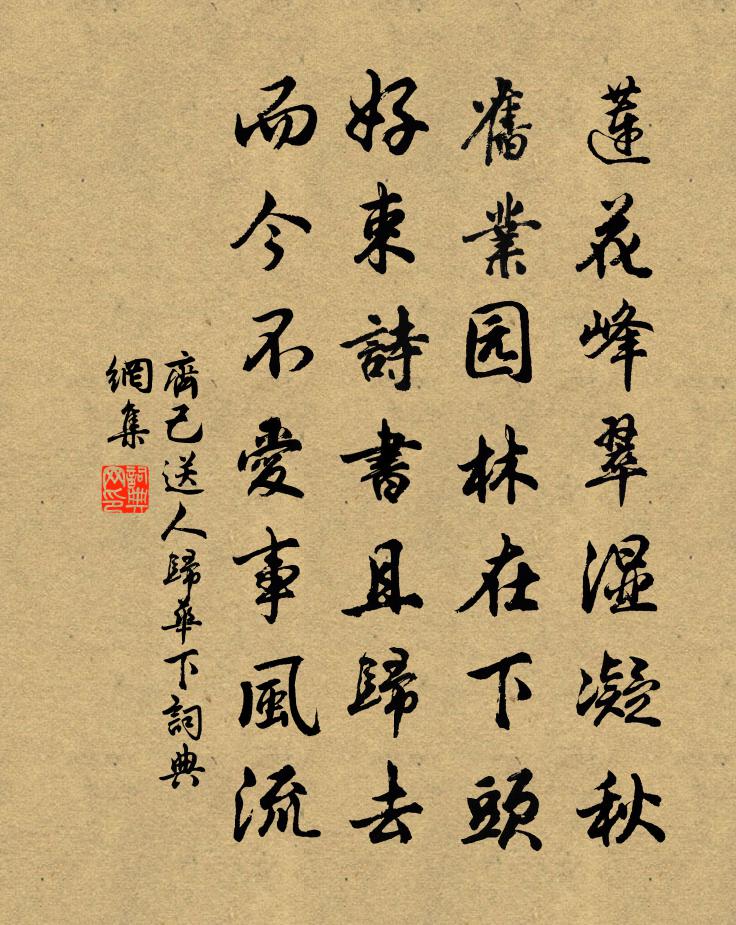 蓮花峰翠湿凝秋
舊業园林在下頭
好束詩書且歸去
而今不愛事風流
齊己送人歸華下詞典
網集
詞典
网印